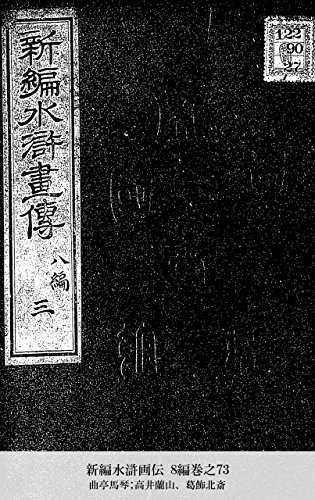 新編水滸畫傳
八編
三
122
90
27
新編水滸画伝 8編巻之73
曲亭馬琴;高井蘭山、葛飾北斎